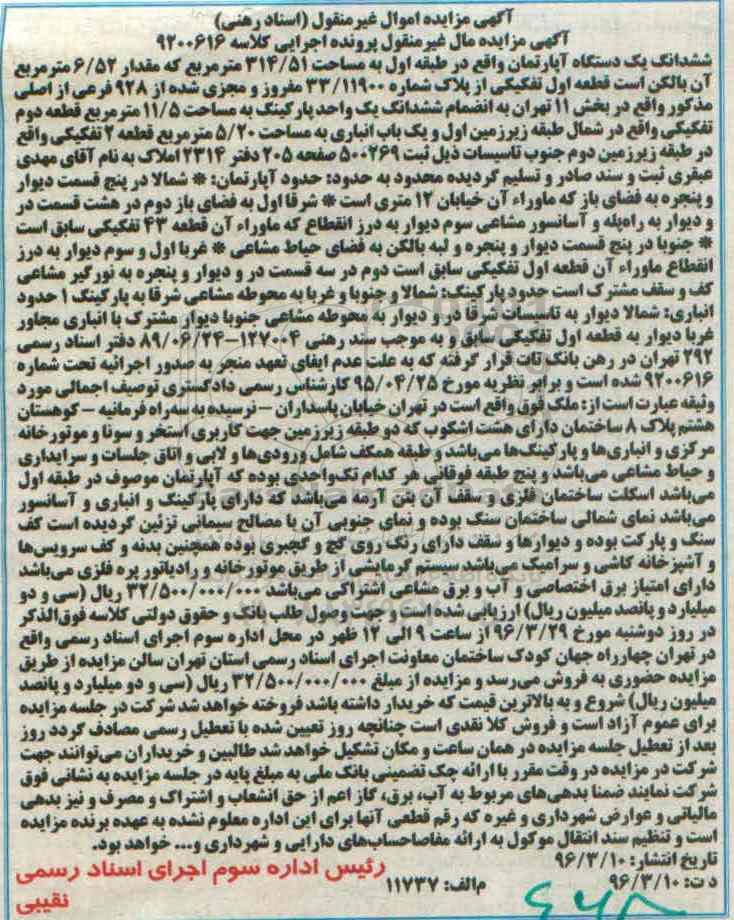 آگهی مزایده اموال غیرمنقول (اسناد رهنی)
آگهی مزایده مال غیرمنقول پرونده اجرایی کلاسه ۹۲۰۰۶۱۶
ششدانگ یک دستگاه آپارتمان واقع در طبقه اول به مساحت ۳۱۴/۵۱ مترمربع که مقدار ۶/۵۲ مترمربع
آن بالکن است قطعه اول تفکیکی از پلاک شماره ۳۳/۱۱۹۰۰ مفروز و مجزی شده از ۹۲۸ فرعی از اصلی
مذکور واقع در بخش ۱۱ تهران به انضمام ششدانگ یک واحد پارکینگ به مساحت ۱۱/۵ مترمربع قطعه دوم
تفکیکی واقع در شمال طبقه زیرزمین اول و یک باب انباری به مساحت ۵/۲۰ مترمربع قطعه ۲ تفکیکی واقع
در طبقه زیرزمین دوم جنوب تاسیسات ذیل ثبت ۵۰۰۲۶۹ صفحه ۲۰۵ دفتر ۲۳۱۴ املاک به نام آقای مهدی
عبقری ثبت و سند صادر و تسلیم گردیده محدود به حدود: حدود آپارتمان: * شمالا در پنج قسمت دیوار
و پنجره به فضای باز که ماوراء آن خیابان ۱۲ متری است * شرقا اول به فضای باز دوم در هشت قسمت در
و دیوار به راه‌پله و آسانسور مشاعی سوم دیوار به درز انقطاع که ماوراء آن قطعه ۴۳ تفکیکی سابق است
* جنوبا در پنج قسمت دیوار و پنجره و لبه بالکن به فضای حیاط مشاعی * غربا اول و سوم دیوار به درز
انقطاع ماوراء آن قطعه اول تفکیکی سابق است دوم در سه قسمت در و دیوار و پنجره به نورگیر مشاعی
کف و سقف مشترک است حدود پارکینگ: شمالا و جنوبا و غربا به محوطه مشاعی شرقا به پارکینگ ۱ حدود
انباری: شمالا دیوار به تاسیسات شرقا در و دیوار به محوطه مشاعی جنوبا دیوار مشترک با انباری مجاور
غربا دیوار به قطعه اول تفکیکی سابق و به موجب سند رهنی ۱۲۷۰۰۴-۸۹/۰۶/۲۴ دفتر اسناد رسمی
۲۹۲ تهران در رهن بانک تات قرار گرفته که به علت عدم ایفای تعهد منجر به صدور اجرائیه تحت شماره
۹۲۰۰۶۱۶ شده است و برابر نظریه مورخ ۹۵/۰۴/۲۵ کارشناس رسمی دادگستری توصیف اجمالی مورد
وثیقه عبارت است از: ملک فوق واقع است در تهران خیابان پاسداران – نرسیده به سه‌راه فرمانیه – کوهستان
هشتم پلاک ۸ ساختمان دارای هشت اشکوب که دو طبقه زیرزمین جهت کاربری استخر و سونا و موتورخانه
مرکزی و انباری‌ها و پارکینگ‌ها می‌باشد و طبقه همکف شامل ورودی‌ها و لابی و اتاق جلسات و سرایداری
و حیاط مشاعی می‌باشد و پنج طبقه فوقانی هر کدام تک‌واحدی بوده که آپارتمان موصوف در طبقه اول
می‌باشد اسکلت ساختمان فلزی و سقف آن بتن آرمه می‌باشد که دارای پارکینگ و انباری و آسانسور
می‌باشد نمای شمالی ساختمان سنگ بوده و نمای جنوبی آن با مصالح سیمانی تزئین گردیده است کف
سنگ و پارکت بوده و دیوارها و سقف دارای رنگ روی گچ و گچبری بوده همچنین بدنه و کف سرویس‌ها
و آشپزخانه کاشی و سرامیک می‌باشد سیستم گرمایشی از طریق موتورخانه و رادیاتور پره فلزی می‌باشد
دارای امتیاز برق اختصاصی و آب و برق مشاعی اشتراکی می‌باشد ۳۲/۵۰۰/۰۰۰/۰۰۰ ریال (سی و دو
میلیارد و پانصد میلیون ریال) ارزیابی شده است و جهت وصول طلب بانک و حقوق دولتی کلاسه فوق‌الذکر
در روز دوشنبه مورخ ۹۶/۳/۲۹ از ساعت ۹ الی ۱۲ ظهر در محل اداره سوم اجرای اسناد رسمی واقع
در تهران چهارراه جهان کودک ساختمان معاونت اجرای اسناد رسمی استان تهران سالن مزایده از طریق
مزایده حضوری به فروش می‌رسد و مزایده از مبلغ ۳۲/۵۰۰/۰۰۰/۰۰۰ ریال (سی و دو میلیارد و پانصد
میلیون ریال) شروع و به بالاترین قیمت که خریدار داشته باشد فروخته خواهد شد شرکت در جلسه مزایده
برای عموم آزاد است و فروش کلا نقدی است چنانچه روز تعیین شده با تعطیل رسمی مصادف گردد روز
بعد از تعطیل جلسه مزایده در همان ساعت و مکان تشکیل خواهد شد طالبین و خریداران می‌توانند جهت
شرکت در مزایده در وقت مقرر با ارائه چک تضمینی بانک ملی به مبلغ پایه در جلسه مزایده به نشانی فوق
شرکت نمایند ضمنا بدهی‌های مربوط به آب، برق، گاز اعم از حق انشعاب و اشتراک و مصرف و نیز بدهی
مالیاتی و عوارض شهرداری و غیره که رقم قطعی آنها برای این اداره معلوم نشده به عهده برنده مزایده
است و تنظیم سند انتقال موکول به ارائه مفاصاحساب‌های دارایی و شهرداری و... خواهد بود.
تاریخ انتشار: ۹۶/۳/۱۰
رئیس اداره سوم اجرای اسناد رسمی
د ت: ۹۶/۳/۱۰ م‌الف: ۱۱۷۳۷
نقیبی